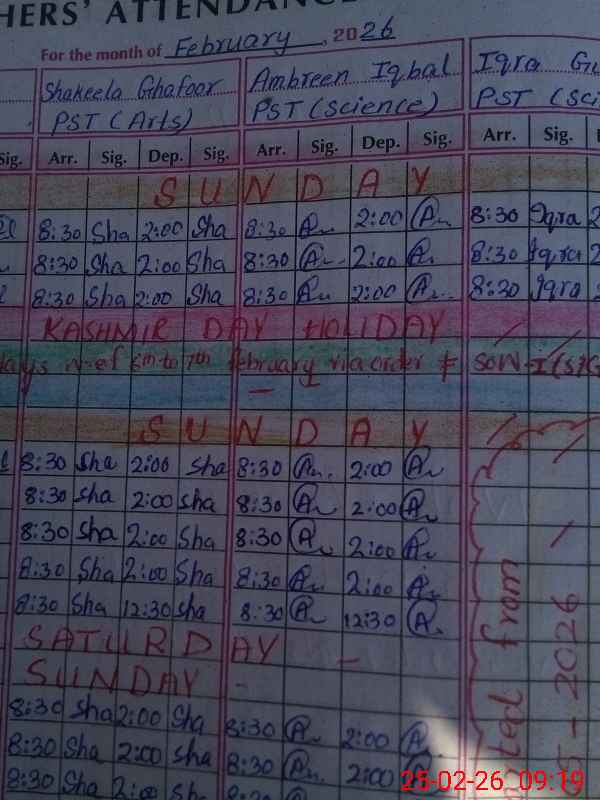 HERS' ATTENDANC
For the month of February, 2026
Shakeela Ghafoor Ambreen Iqbal Iqra Gu
PST (Arts) PST (Science) PST (Sci
Sig. Arr. Sig. Dep. Sig. Arr. Sig. Dep. Sig. Arr. Sig.
SUNDAY
8:30 Sha 2:00 Sha 8:30 A 2:00 A 8:30 Iqra 2
8:30 Sha 2:00 Sha 8:30 A 2:00 A 8:30 Iqra 2
8:30 Sha 2:00 Sha 8:30 A 2:00 A 8:30 Iqra 2
KASHMIR DAY HOLIDAY
days w-ef 6th to 7th february via order #
SUNDAY
8:30 Sha 2:00 Sha 8:30 A 2:00 A
8:30 Sha 2:00 Sha 8:30 A 2:00 A
8:30 Sha 2:00 Sha 8:30 A 2:00 A
8:30 Sha 2:00 Sha 8:30 A 2:00 A
8:30 Sha 12:30 Sha 8:30 A 12:30 A
SATURDAY -
SUNDAY -
8:30 Sha 2:00 Sha 8:30 A 2:00 A
8:30 Sha 2:00 Sha 8:30 A 2:00 A
8:30 Sha 2:00 Sha 8:30 A
from
- 2026
25-02-26 09:19